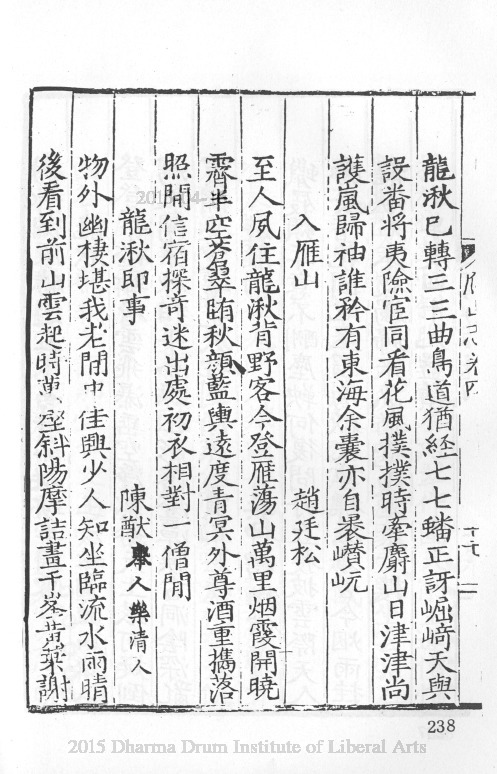 龍湫已轉三三曲鳥道猶經七七蟠正訝崛﨑天與
設畨將夷險宦同看花風撲撲時牽麝山日津津尚
護嵐歸袖誰矜有東海余囊亦自褁巑岏
入雁山　趙廷松
至人夙住龍湫背野客今登雁蕩山萬里烟霞開曉
霽半空蒼翠晴秋顔藍輿遠度青冥外尊酒重攜落
照間信宿探奇迷出處初衣相對一僧閒
龍湫即事　陳猷 舉人樂清人
物外幽棲堪我老閒中佳興少人知坐臨流水雨晴
後看到前山雲起時萬壑斜陽摩詰畫千峯黄葉謝
雁山志卷四
十七
238
2015-04-
2015 Dharma Drum Institute of Liberal Arts